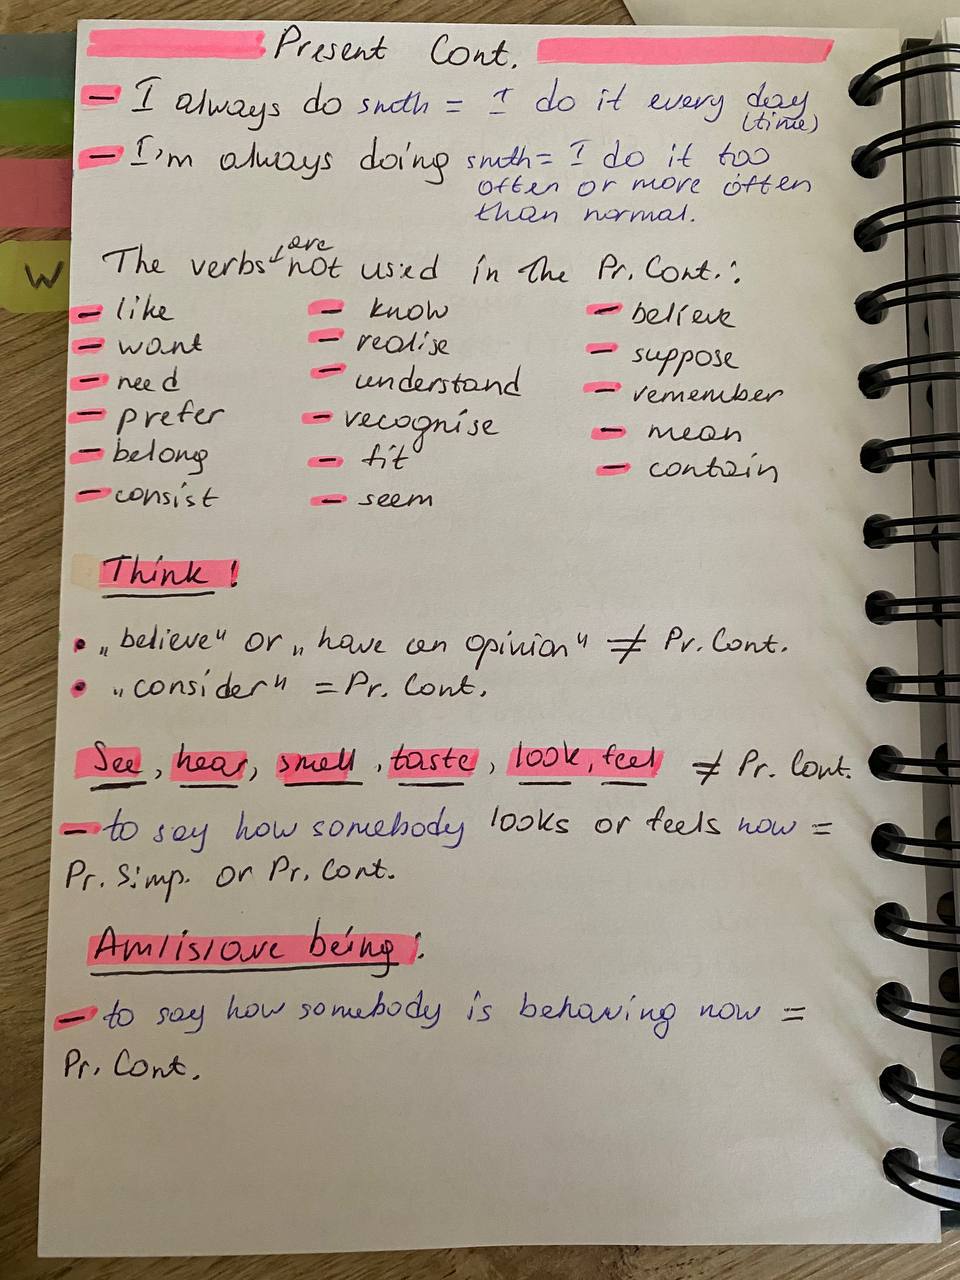 Present Cont.
- I always do smth = I do it every day
(time)
- I'm always doing smth = I do it too
often or more often
than normal.
The verbs are not used in the Pr. Cont.:
W
- like - know - believe
- want - realise - suppose
- need - understand - remember
- prefer - recognise - mean
- belong - fit - contain
- consist - seem
Think!
• „believe" or „have an opinion" ≠ Pr. Cont.
• „consider" = Pr. Cont.
See, hear, smell, taste, look, feel ≠ Pr. Cont.
- to say how somebody looks or feels now =
Pr. Simp. or Pr. Cont.
Am/is/are being:
- to say how somebody is behaving now =
Pr. Cont.